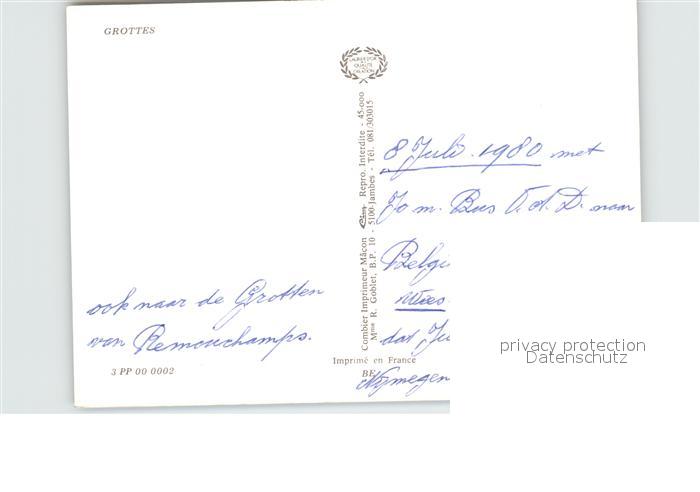 GROTTES
LAURIER D'OR
QUALITÉ
CRÉATION
Combier Imprimeur Mâcon Cim Repro. Interdite - 45-000
Mme R. Goblet, B.P. 10 - 5100-Jambes - Tél. 081/303015
8 Juli 1980 met
Jo m. Bus O.A.D. naar
Belgi
dat Ju
Nijmegen
ook naar de Grotten
van Remouchamps.
Imprimé en France
BE
3 PP 00 0002
privacy protection
Datenschutz